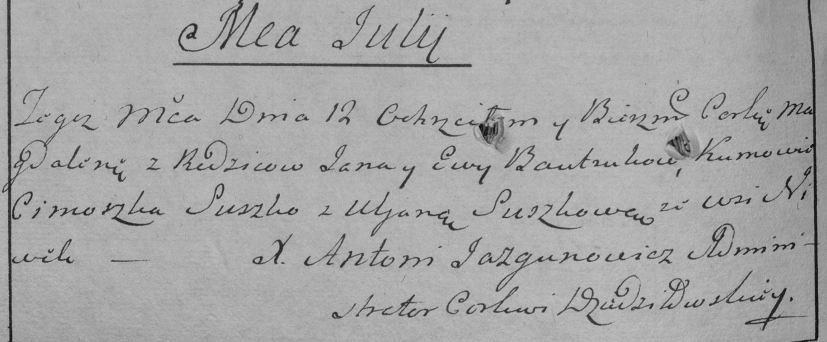 Mca Julij
Tegoż Mca Dnia 12 Ochrzciłem y Bierzm Corkę Ma
gdalenę z Rodzicow Jana y Ewy Bautrukow, Kumowie
Cimoszka Suszko z Uljaną Suszkową ze wsi Ni
wek — X. Antoni Jazgunowicz Admini-
strator Cerkwi Dziedziłowskiey.